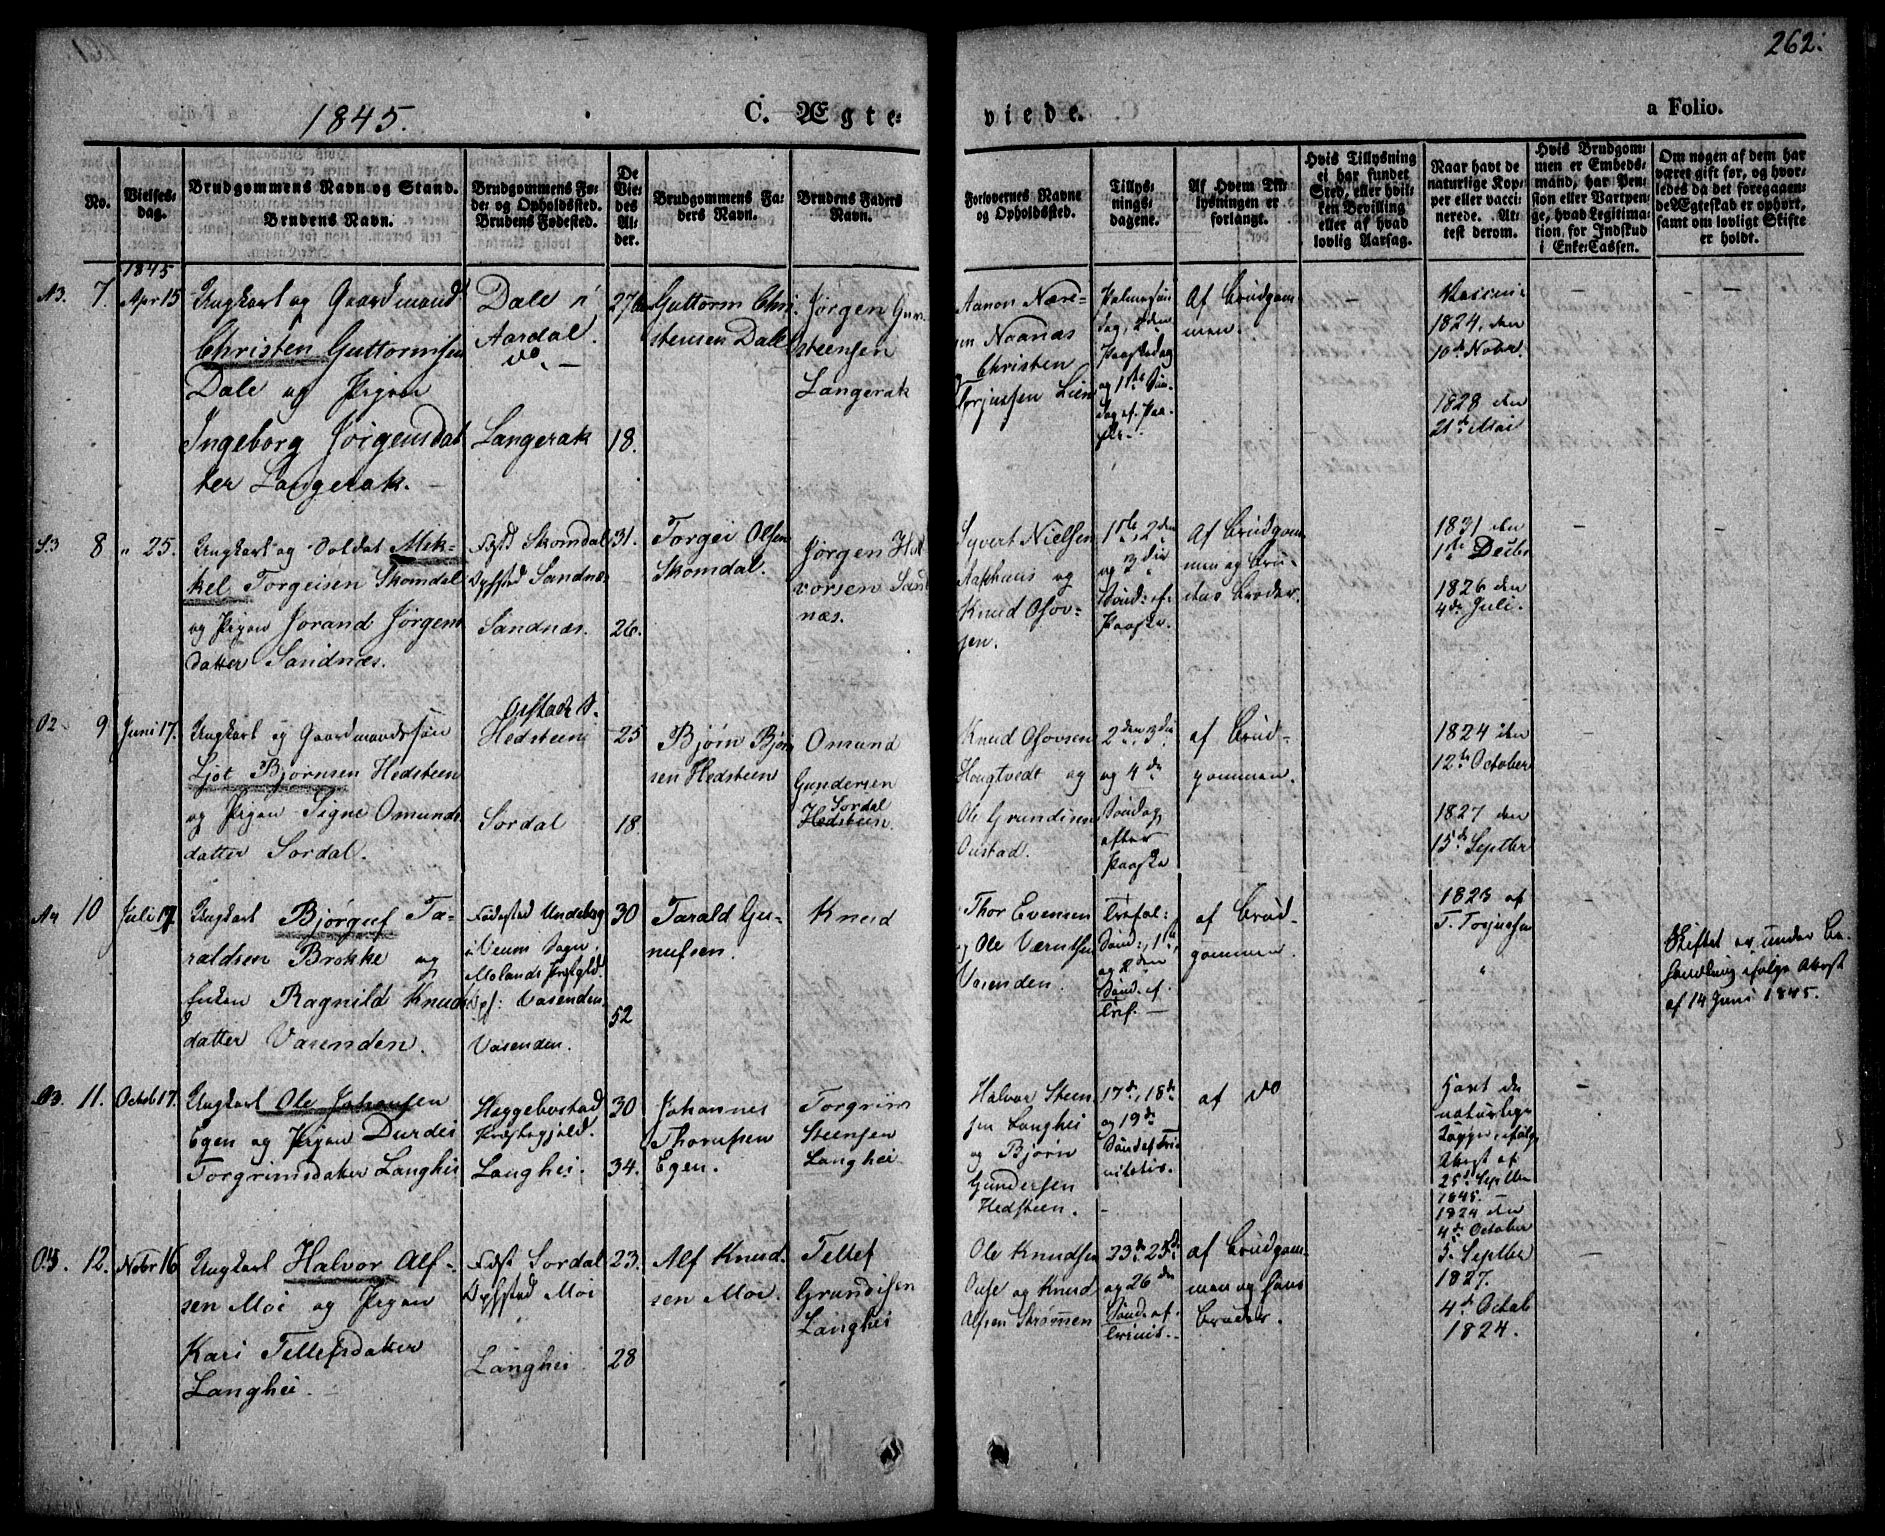 262.
1845.
C. Ægte-
viede.
a Folio.
No.
Vielses-
dag.
Brudgommens Navn og Stand.
Brudens Navn.
Brudgommens Fø-
de- og Opholdssted.
Brudens Fødested.
De
Vie-
des
Al-
der.
Brudgommens Fa-
ders Navn.
Brudens Faders
Navn.
Forlovernes Navne
og Opholdssted.
Tillys-
nings-
dagene.
Af Hvem Til-
lysningen er
forlangt.
Hvis Tillysning
ei har fundet
Sted, eller hvil-
ken Bevilling
eller af hvad
lovlig Aarsag.
Naar havt de
naturlige Kop-
per eller vacci-
nerede. At-
test derom.
Hvis Brudgom-
men er Embeds-
mand, har Pen-
sion eller Vartpen-
ge, hvad Legitima-
tion, for Indskud
i Enke-Cassen.
Om nogen af dem har
været gift før, og hvor-
ledes da det foregaaen-
de Ægteskab er ophørt,
samt om lovligt Skifte
er holdt.
1845
7. Apr 15
Ungkarl og Gaardmand
Christen Guttormsen
Dale og Pigen
Ingeborg Jørgensdat
ter Langerak.
Dale i
Aardal.
Langerak
18.
Guttorm Chri
stensen Dale
Jørgen
steensen
Langerak
Aanon
Christen
Torjussen Lien
Palmesøn
dag, 2den
Paaskedag
og 1ste Søn
dag ef. Paa
Af Brudgom
men.
1824, den
10de Nobr.
1828 den
21de Mai
8 " 25.
Ungkarl og Soldat Mik-
kel Torgeisen Skomdal
og Pigen Jorand Jørgens
datter Sandnæs.
Fødst. Skomdal
Sandnæs
Sandnæs.
31.
26.
Torgei Olsen
Skomdal.
Jørgen Hal
vorsen Sand
næs.
Syvert Nielsen
og
Knud Osov-
sen.
1ste, 2den
og 3die
Sønd: ef.
Paaske.
Af Brudgom
men og Bru-
dens Broder.
1831 den
1ste Decbr
1826 den
4de Juli.
9 Juni 17.
Ungkarl og Gaardmandssøn
Ljot Bjørnsen Hedsteen
og Pigen Signe Omunds
datter Sordal.
Hedsteen
Sordal
25
18
Bjørn Bjørn
sen Hedsteen
Omund
Gundersen
Sordal
Hedsteen.
Knud Osovsen
Hougtvedt og
Ole Grundesen
Oustad.
2den, 3die
og 4de
Søndag
efter
Paaske
af Brud-
gommen.
1824 den
12te October
1827 den
15de Septbr
10 Juli 17
Ungkarl Bjørguf Ta-
raldsen Brokke og
Enken Ragnild Knuds
datter Vasenden.
Fødested
i Veum Sogn,
Molands Præstgld.
Opf: Vasenden.
Vasenden.
30
52
Tarald Gu-
nufsen.
Knud
Thor Evensen
og Ole
Vasenden.
Trefol:
Sønd:, 1ste
og 2den
Sønd. ef.
Tref. —
af Brud-
gommen.
1823 af
T. Torjussen
Skiftet er under Be-
handling ifølge Attest
af 14 Juni 1845.
11. Octob 17.
Ungkarl Ole Johansen
Egen og Pigen Durdei
Torgrimsdatter Langhei
Heggebostad
Præstegjeld.
Langhei.
30
34.
Johannes
Egen.
Torgrim
Steensen
Langhei
Halvor Steen
sen Langhei
og Bjørn
Gundersen
Hedsteen.
17de, 18de
og 19de
Sønd ef Tri
nitatis.
af do
Havt de
naturlige
Kopper, ifølg
Attest af
25de Septbr
1845.
1824 den
4de October
12. Nobr 16
Ungkarl Halvor Alf-
sen Moi og Pigen
Kari Tellefsdatter
Langhei.
Født Sordal
Opfsted Moi
Langhei
23.
28
Alf Knud.
sen Moi.
Tellef
Grundesen
Langhei
Ole Knudsen
Ouse og Knud
Alfsen Strømmen
23de 25de
og 26de
Sønd. ef.
Trinit.
af Brudgom-
men og hans
Broder.
5. Septbr
1827.
4de Octob
1824.